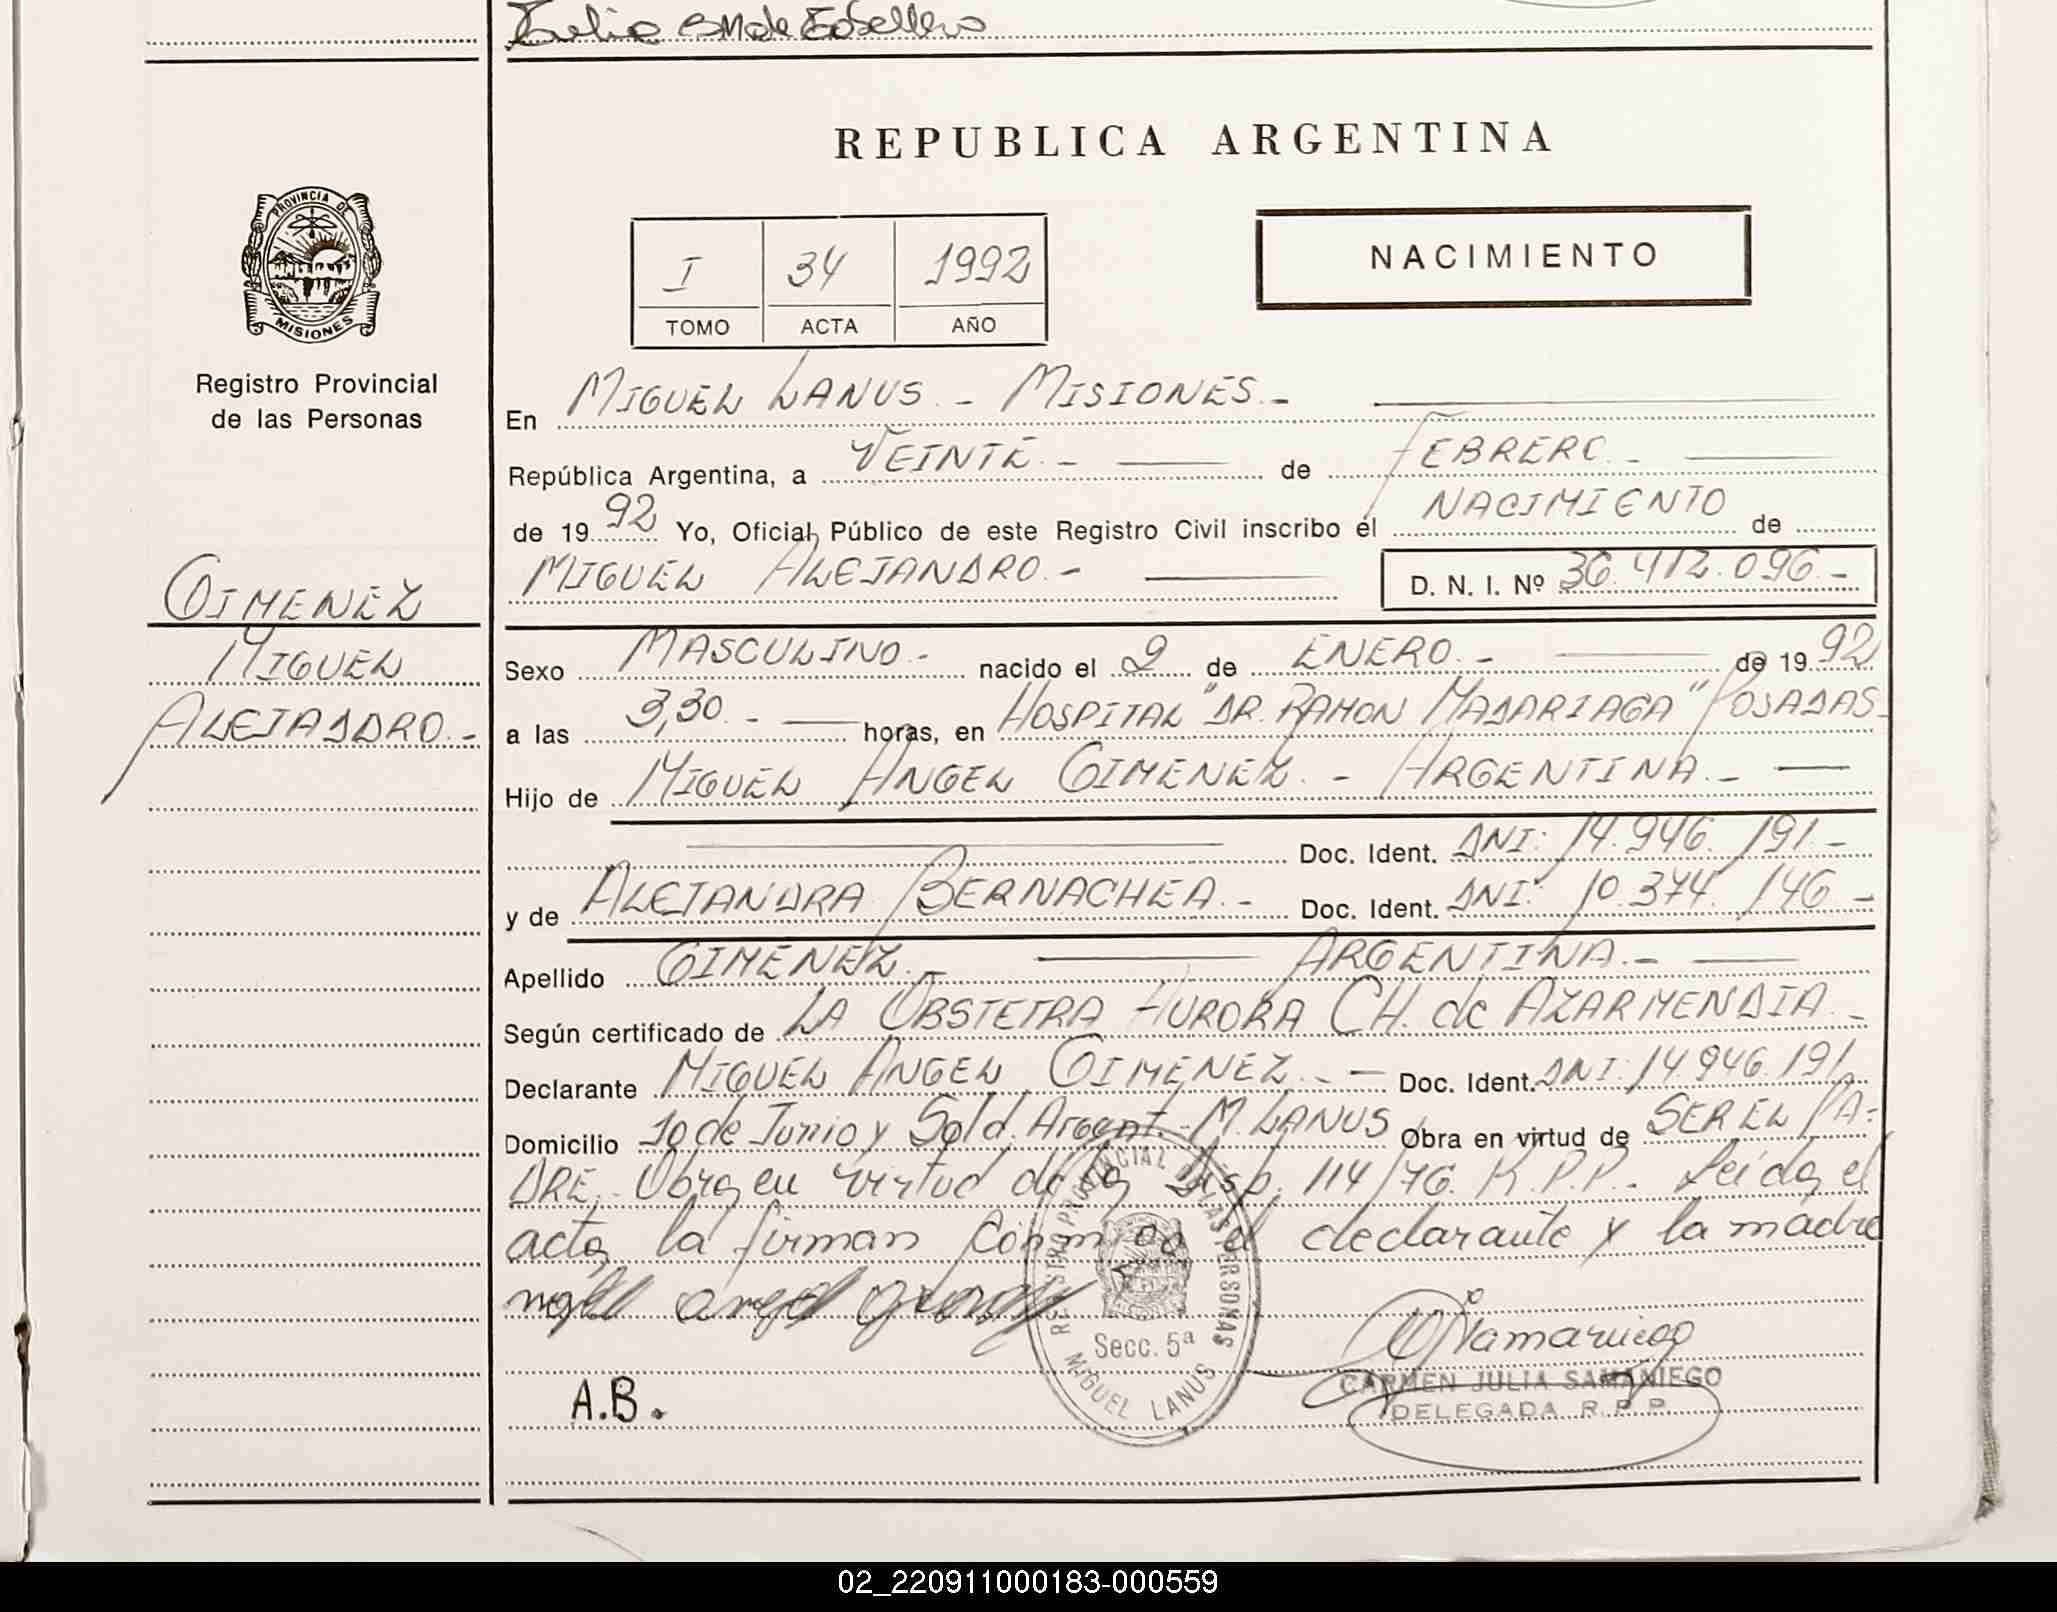 REPUBLICA ARGENTINA
PROVINCIA DE
MISIONES
Registro Provincial
de las Personas
I 34 1992
TOMO ACTA AÑO
NACIMIENTO
En MIGUEL LANUS - MISIONES.-
República Argentina, a VEINTE.- de FEBRERO.-
de 1992 Yo, Oficial Público de este Registro Civil inscribo el NACIMIENTO de
MIGUEL ALEJANDRO.- D. N. I. Nº 36.412.096.-
GIMENEZ
MIGUEL
ALEJANDRO.-
Sexo MASCULINO.- nacido el 2 de ENERO.- de 1992
a las 3,30.- horas, en HOSPITAL "DR. RAMON MADARIAGA" POSADAS-
Hijo de MIGUEL ANGEL GIMENEZ.- ARGENTINA.-
Doc. Ident. DNI: 14.946.191.-
y de ALEJANDRA BERNACHEA.- Doc. Ident. DNI: 10.374.146-
Apellido GIMENEZ.- ARGENTINA.-
Según certificado de LA OBSTETRA AURORA CH. de AZARMENDIA.-
Declarante MIGUEL ANGEL GIMENEZ.- Doc. Ident. DNI: 14.946.191
Domicilio 10 de Junio y Sold. Argent.- M. LANUS Obra en virtud de SER EL PA-
DRE.- Obra en virtud de la Disp. 114/76. R.P.P.- Leida el
acta, la firman conmigo el declarante y la madre
REGISTRO PROVINCIAL DE LAS PERSONAS
Secc. 5ª
MIGUEL LANUS
A.B.
Samaniego
CARMEN JULIA SAMANIEGO
DELEGADA R.P.P.
02_220911000183-000559